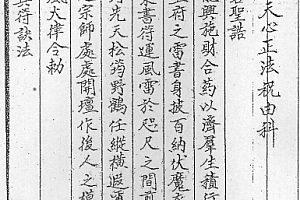 天心正法祝由科
聖誥
能興施財合藥以濟羣生積行
符之雷書身披百納伏魔
書符運風雷於咫尺之間前
光天松筠野鶴任縱橫遐
宗師處處開壇作後人之
大律令勅
符訣法